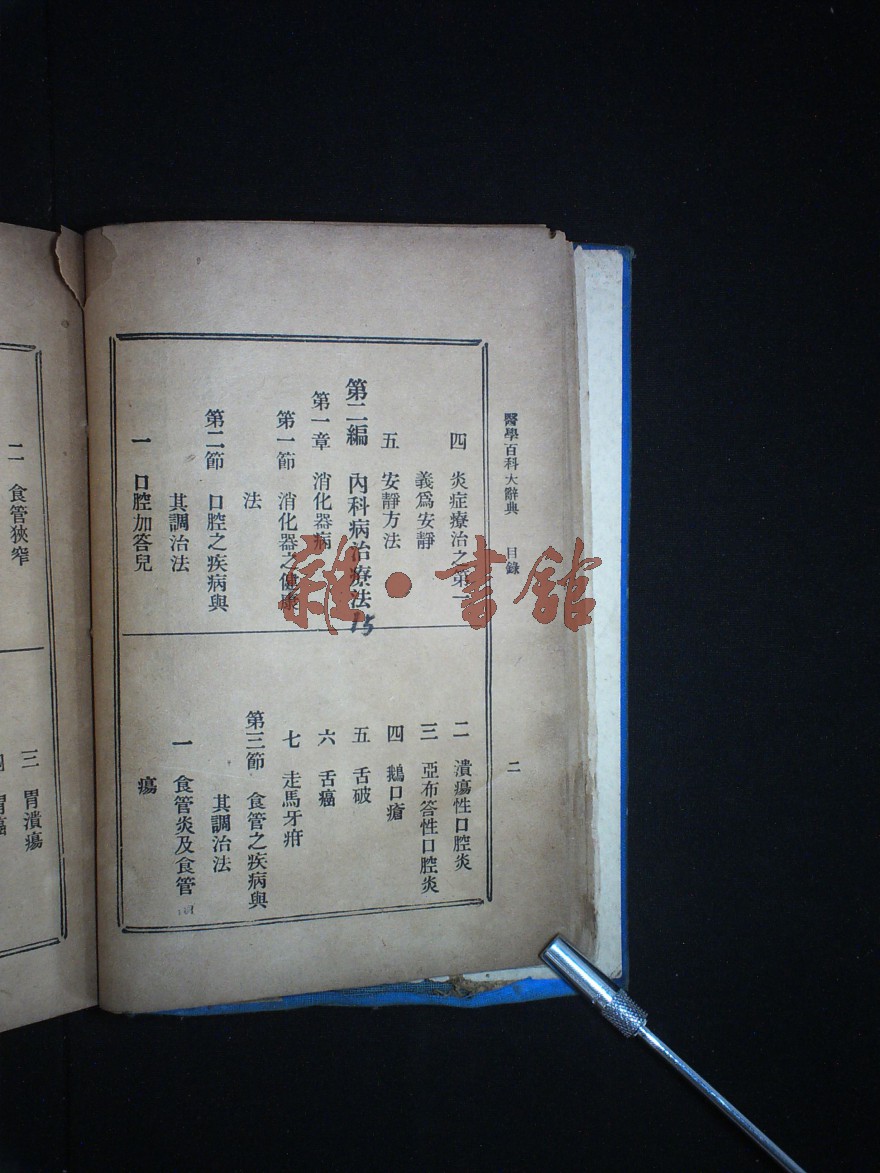 醫學百科大辭典 目錄
二
四 炎症療治之第一
義爲安靜
五 安靜方法
第二編 內科病治療法
15
第一章 消化器病
第一節 消化器之健康
法
第二節 口腔之疾病與
其調治法
一 口腔加答兒
二 潰瘍性口腔炎
三 亞布答性口腔炎
四 鵝口瘡
五 舌破
六 舌癌
七 走馬牙疳
第三節 食管之疾病與
其調治法
一 食管炎及食管
瘍
二 食管狹窄
三 胃潰瘍
四 胃癌
雜·書館